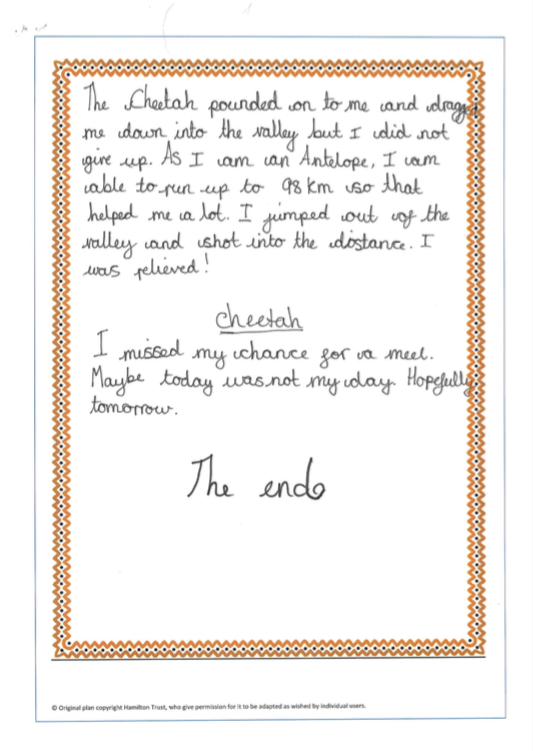 The Cheetah pounded on to me and dragged
me down into the valley but I did not
give up. As I am an Antelope, I am
able to run up to 98 km so that
helped me a lot. I jumped out of the
valley and shot into the distance. I
was relieved!
Cheetah
I missed my chance for a meel.
Maybe today was not my day. Hopefully
tomorrow.
The end
© Original plan copyright Hamilton Trust, who give permission for it to be adapted as wished by individual users.